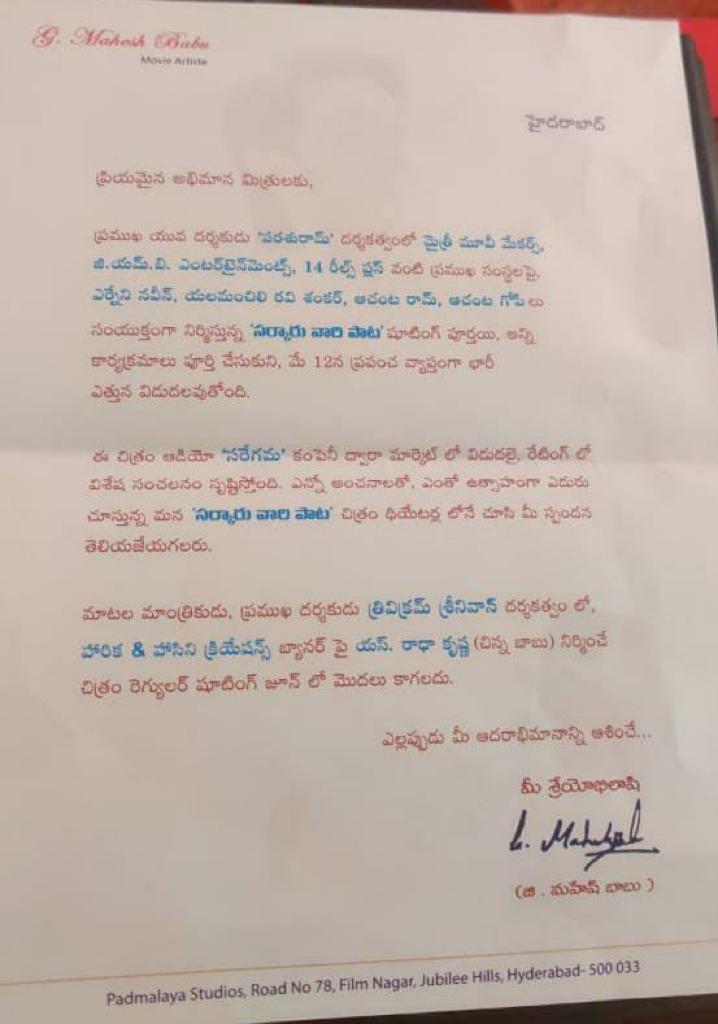 G. Mahesh Babu
Movie Artiste
హైదరాబాద్
ప్రియమైన అభిమాన మిత్రులకు,
ప్రముఖ యువ దర్శకుడు 'పరశురామ్' దర్శకత్వంలో మైత్రీ మూవీ మేకర్స్,
జి.యమ్.బి. ఎంటర్‌టైన్‌మెంట్స్, 14 రీల్స్ ప్లస్ వంటి ప్రముఖ సంస్థలపై,
ఎర్నేని నవీన్, యలమంచిలి రవి శంకర్, ఆచంట రామ్, ఆచంట గోపీ లు
సంయుక్తంగా నిర్మిస్తున్న 'సర్కారు వారి పాట' షూటింగ్ పూర్తయి, అన్ని
కార్యక్రమాలు పూర్తి చేసుకుని, మే 12న ప్రపంచ వ్యాప్తంగా భారీ
ఎత్తున విడుదలవుతోంది.
ఈ చిత్రం ఆడియో 'సరేగమ' కంపెనీ ద్వారా మార్కెట్ లో విడుదలై, రేటింగ్ లో
విశేష సంచలనం సృష్టిస్తోంది. ఎన్నో అంచనాలతో, ఎంతో ఉత్సాహంగా ఎదురు
చూస్తున్న మన 'సర్కారు వారి పాట' చిత్రం థియేటర్ల లోనే చూసి మీ స్పందన
తెలియజేయగలరు.
మాటల మాంత్రికుడు, ప్రముఖ దర్శకుడు త్రివిక్రమ్ శ్రీనివాస్ దర్శకత్వం లో,
హారిక & హాసిని క్రియేషన్స్ బ్యానర్ పై యస్. రాధా కృష్ణ (చిన్న బాబు) నిర్మించే
చిత్రం రెగ్యులర్ షూటింగ్ జూన్ లో మొదలు కాగలదు.
ఎల్లప్పుడు మీ ఆదరాభిమానాన్ని ఆశించే...
మీ శ్రేయోభిలాషి
(జి . మహేష్ బాబు )
Padmalaya Studios, Road No 78, Film Nagar, Jubilee Hills, Hyderabad- 500 033